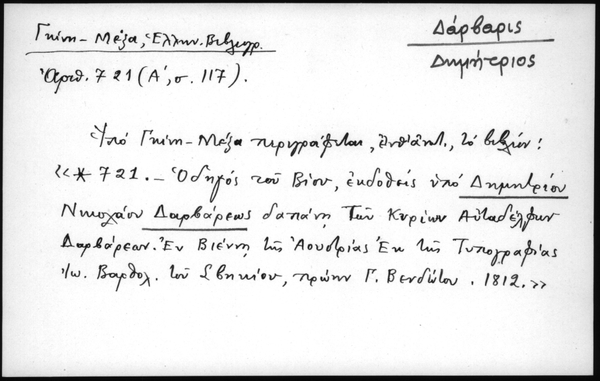 Γκίνη - Μέξα, Ἑλλην. Βιβλιογρ.
Δάρβαρις
Δημήτριος
Ἀριθ. 721 (Α΄, σ. 117).
Ὑπό Γκίνη - Μέξα περιγράφεται, , τό βιβλίον:
«* 721. — Ὁδηγός τοῦ Βίου, ἐκδοθείς ὑπό Δημητρίου
Νικολάου Δαρβάρεως δαπάνῃ τῶν Κυρίων Αὐταδέλφων
Δαρβάρεων. Ἐν Βιέννῃ τῆς Ἀουστρίας Ἐκ τῆς Τυπογραφίας
Ἰω. Βαρθολ. τοῦ Σβηκίου, πρώην Γ. Βενδώτου. 1812.»